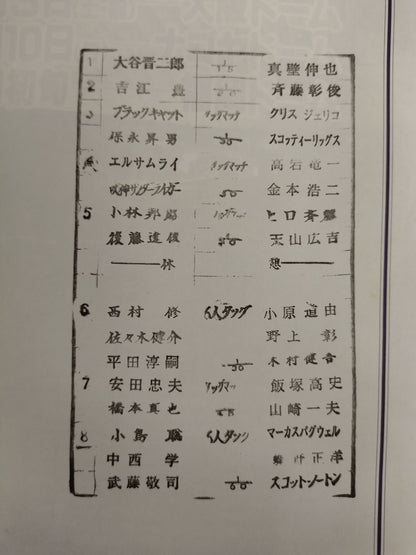 1 大谷晋二郎 1/15 真壁伸也
2 吉江 豊 斉藤彰俊
3 ブラックキャット タッグマッチ クリス ジェリコ
保永昇男 1/30 スコッティーリッグス
4 エルサムライ タッグマッチ 高岩竜一
獣神サンダーライガー 1/30 金本浩二
5 小林邦昭 タッグマッチ ヒロ斉藤
後藤達俊 1/30 天山広吉
休 憩
6 西村 修 6人タッグ 小原道由
佐々木健介 野上 彰
平田淳嗣 木村健吾
7 安田忠夫 タッグマッチ 飯塚高史
橋本真也 山崎一夫
8 小島 聡 6人タッグ マーカスバグウェル
中西 学 蝶野正洋
武藤敬司 1/60 スコット・ノートン